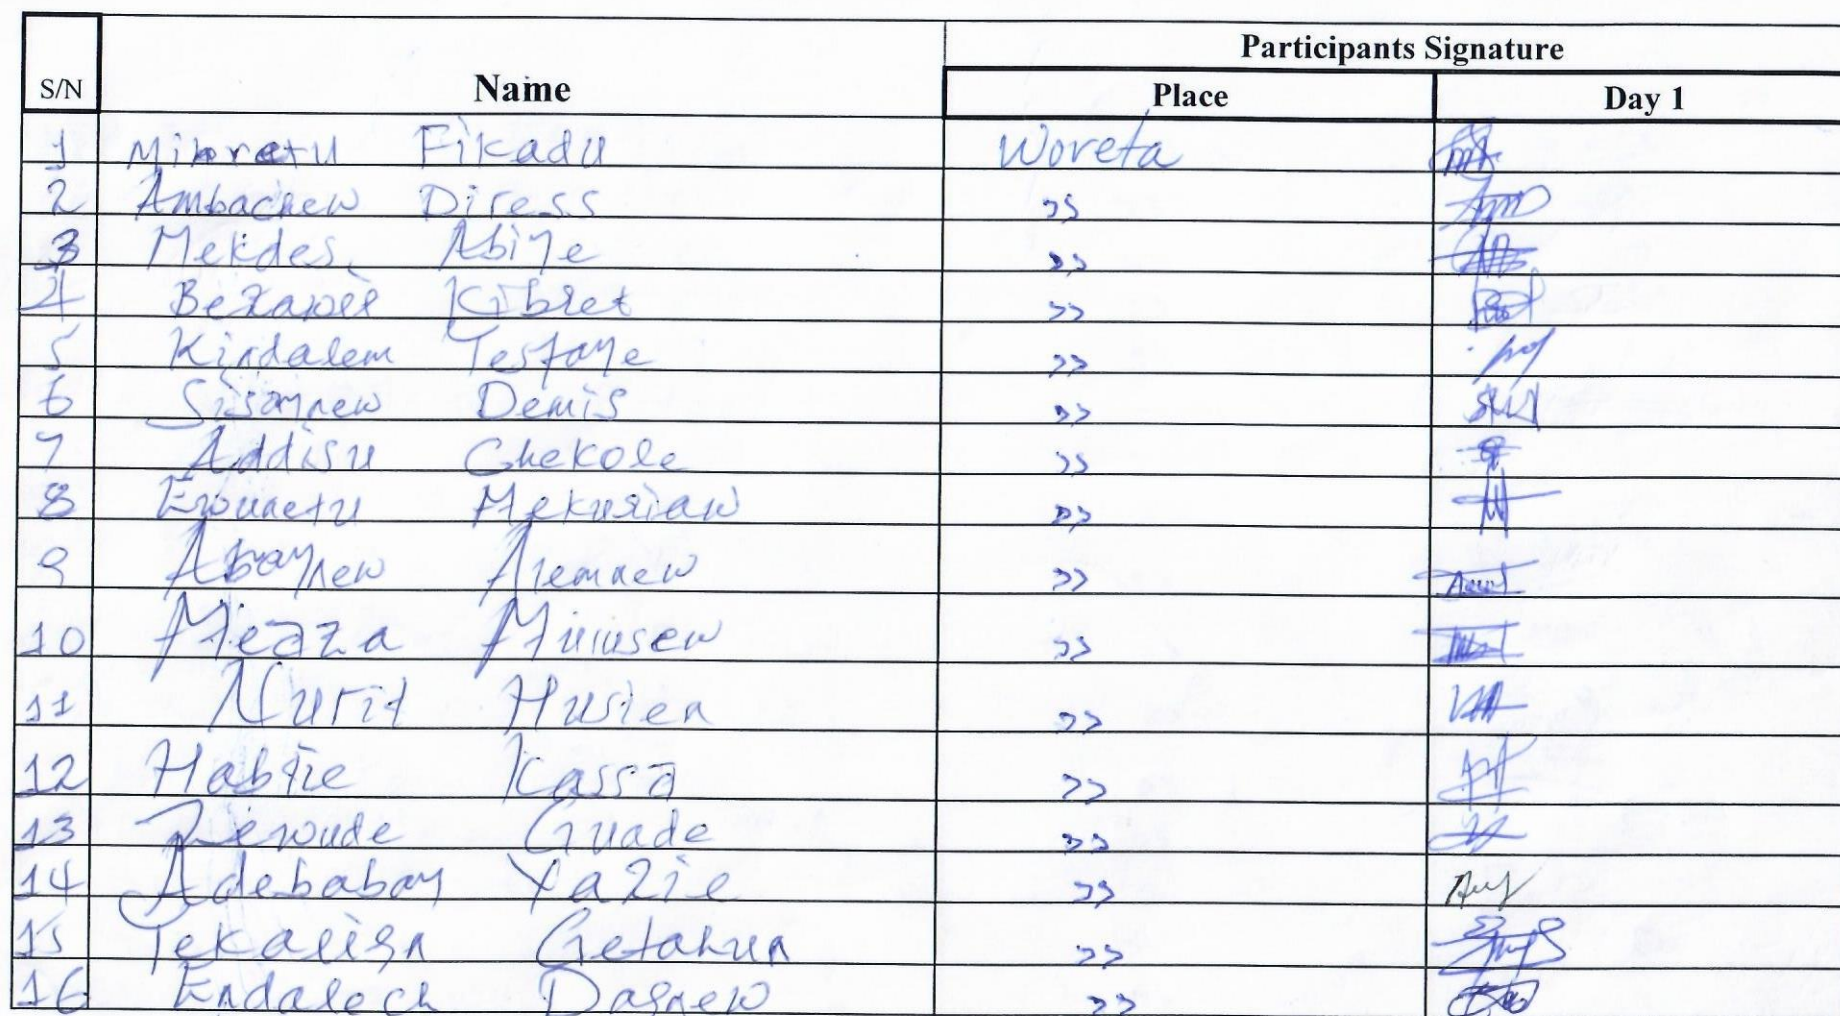 Participants Signature
S/N Name Place Day 1
1 Mihretu Fikadu Woreta
2 Ambachew Diress >>
3 Mekdes Abiye >>
4 Kibret >>
5 Kindalem Tesfaye >>
6 Sisaynew Demis >>
7 Addisu Chekole >>
8 Ewunetu Mekuriaw >>
9 Abaynew Alemnew >>
10 Meaza Mulusew >>
11 Nurit Husien >>
12 Habtie Kassa >>
13 Zewude Guade >>
14 Adebabay Yazie >>
15 Tekalign Getahun >>
16 Endalech Dagnew >>